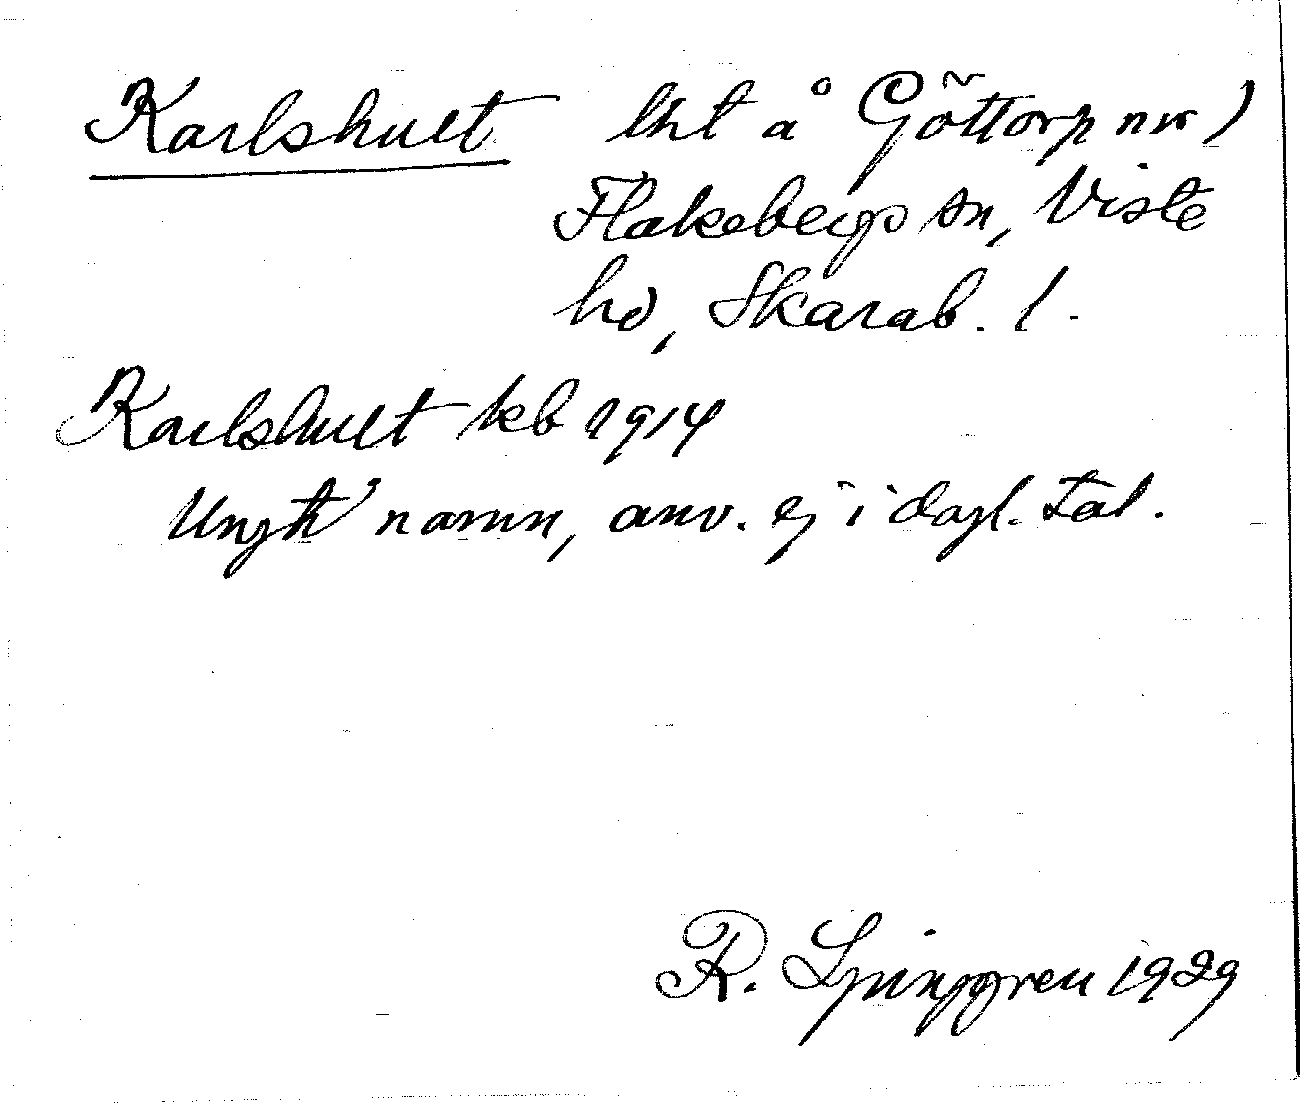 Karlshult lht å Göttorp nr 1
Flakebergs sn, Viste
hd, Skarab. l.
Karlshult kb 1914
Ungt namn, anv. ej i dagl. tal.
R. Ljunggren 1929